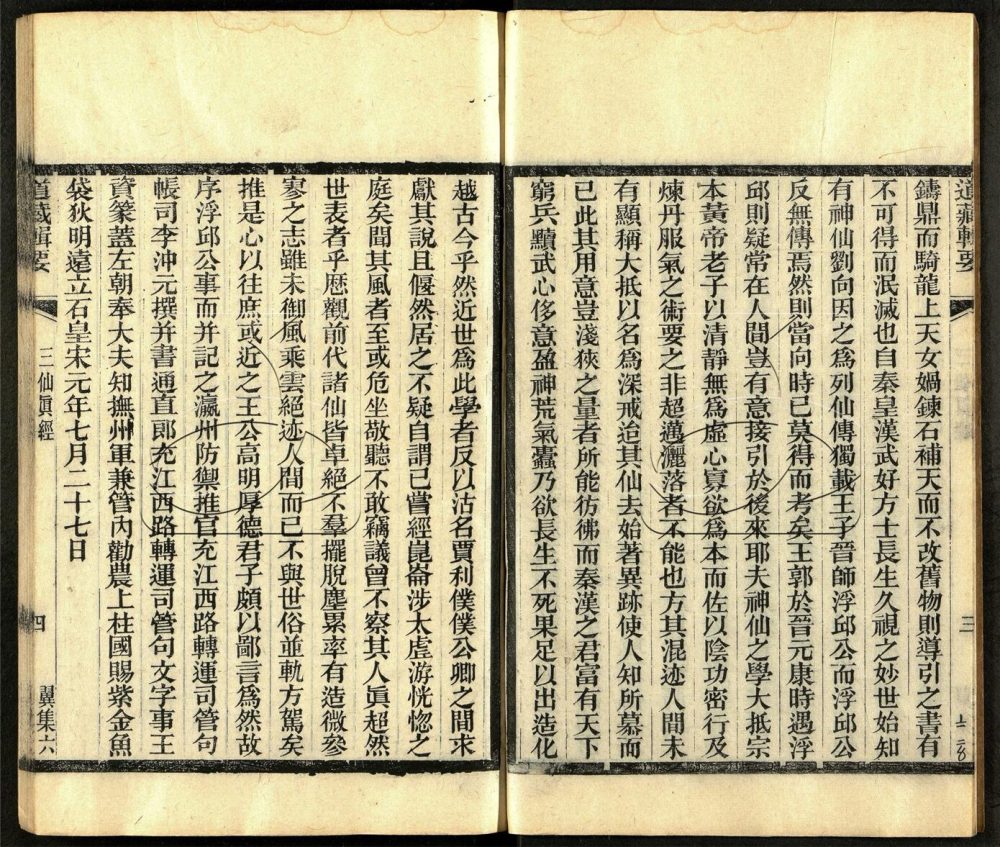 道藏輯要
三
鑄鼎而騎龍上天女媧鍊石補天而不改舊物則導引之書有
不可得而泯滅也自秦皇漢武好方士長生久視之妙世始知
有神仙劉向因之爲列仙傳獨載王子晉師浮邱公而浮邱公
反無傳焉然則當向時已莫得而考矣王郭於晉元康時遇浮
邱則疑常在人間豈有意接引於後來耶夫神仙之學大抵宗
本黃帝老子以清靜無爲虛心寡欲爲本而佐以陰功密行及
煉丹服氣之術要之非超邁灑落者不能也方其混迹人間未
有顯稱大抵以名爲深戒迨其仙去始著異跡使人知所慕而
已此其用意豈淺狹之量者所能彷彿而秦漢之君富有天下
窮兵黷武心侈意盈神荒氣蠹乃欲長生不死果足以出造化
越古今乎然近世爲此學者反以沽名賈利僕僕公卿之間求
獻其說且偃然居之不疑自謂已嘗經崑崙涉太虛游恍惚之
庭矣聞其風者至或危坐敬聽不敢竊議曾不察其人眞超然
世表者乎歷觀前代諸仙皆卓絕不羣擺脫塵累率有造微參
寥之志雖未御風乘雲絕迹人間而已不與世俗並軌方駕矣
推是心以往庶或近之王公高明厚德君子頗以鄙言爲然故
序浮邱公事而并記之瀛州防禦推官充江西路轉運司管句
帳司李沖元撰并書通直郎充江西路轉運司管句文字事王
資篆蓋左朝奉大夫知撫州軍兼管內勸農上柱國賜紫金魚
袋狄明遠立石皇宋元年七月二十七日
道藏輯要
三仙眞經
四
翼集六